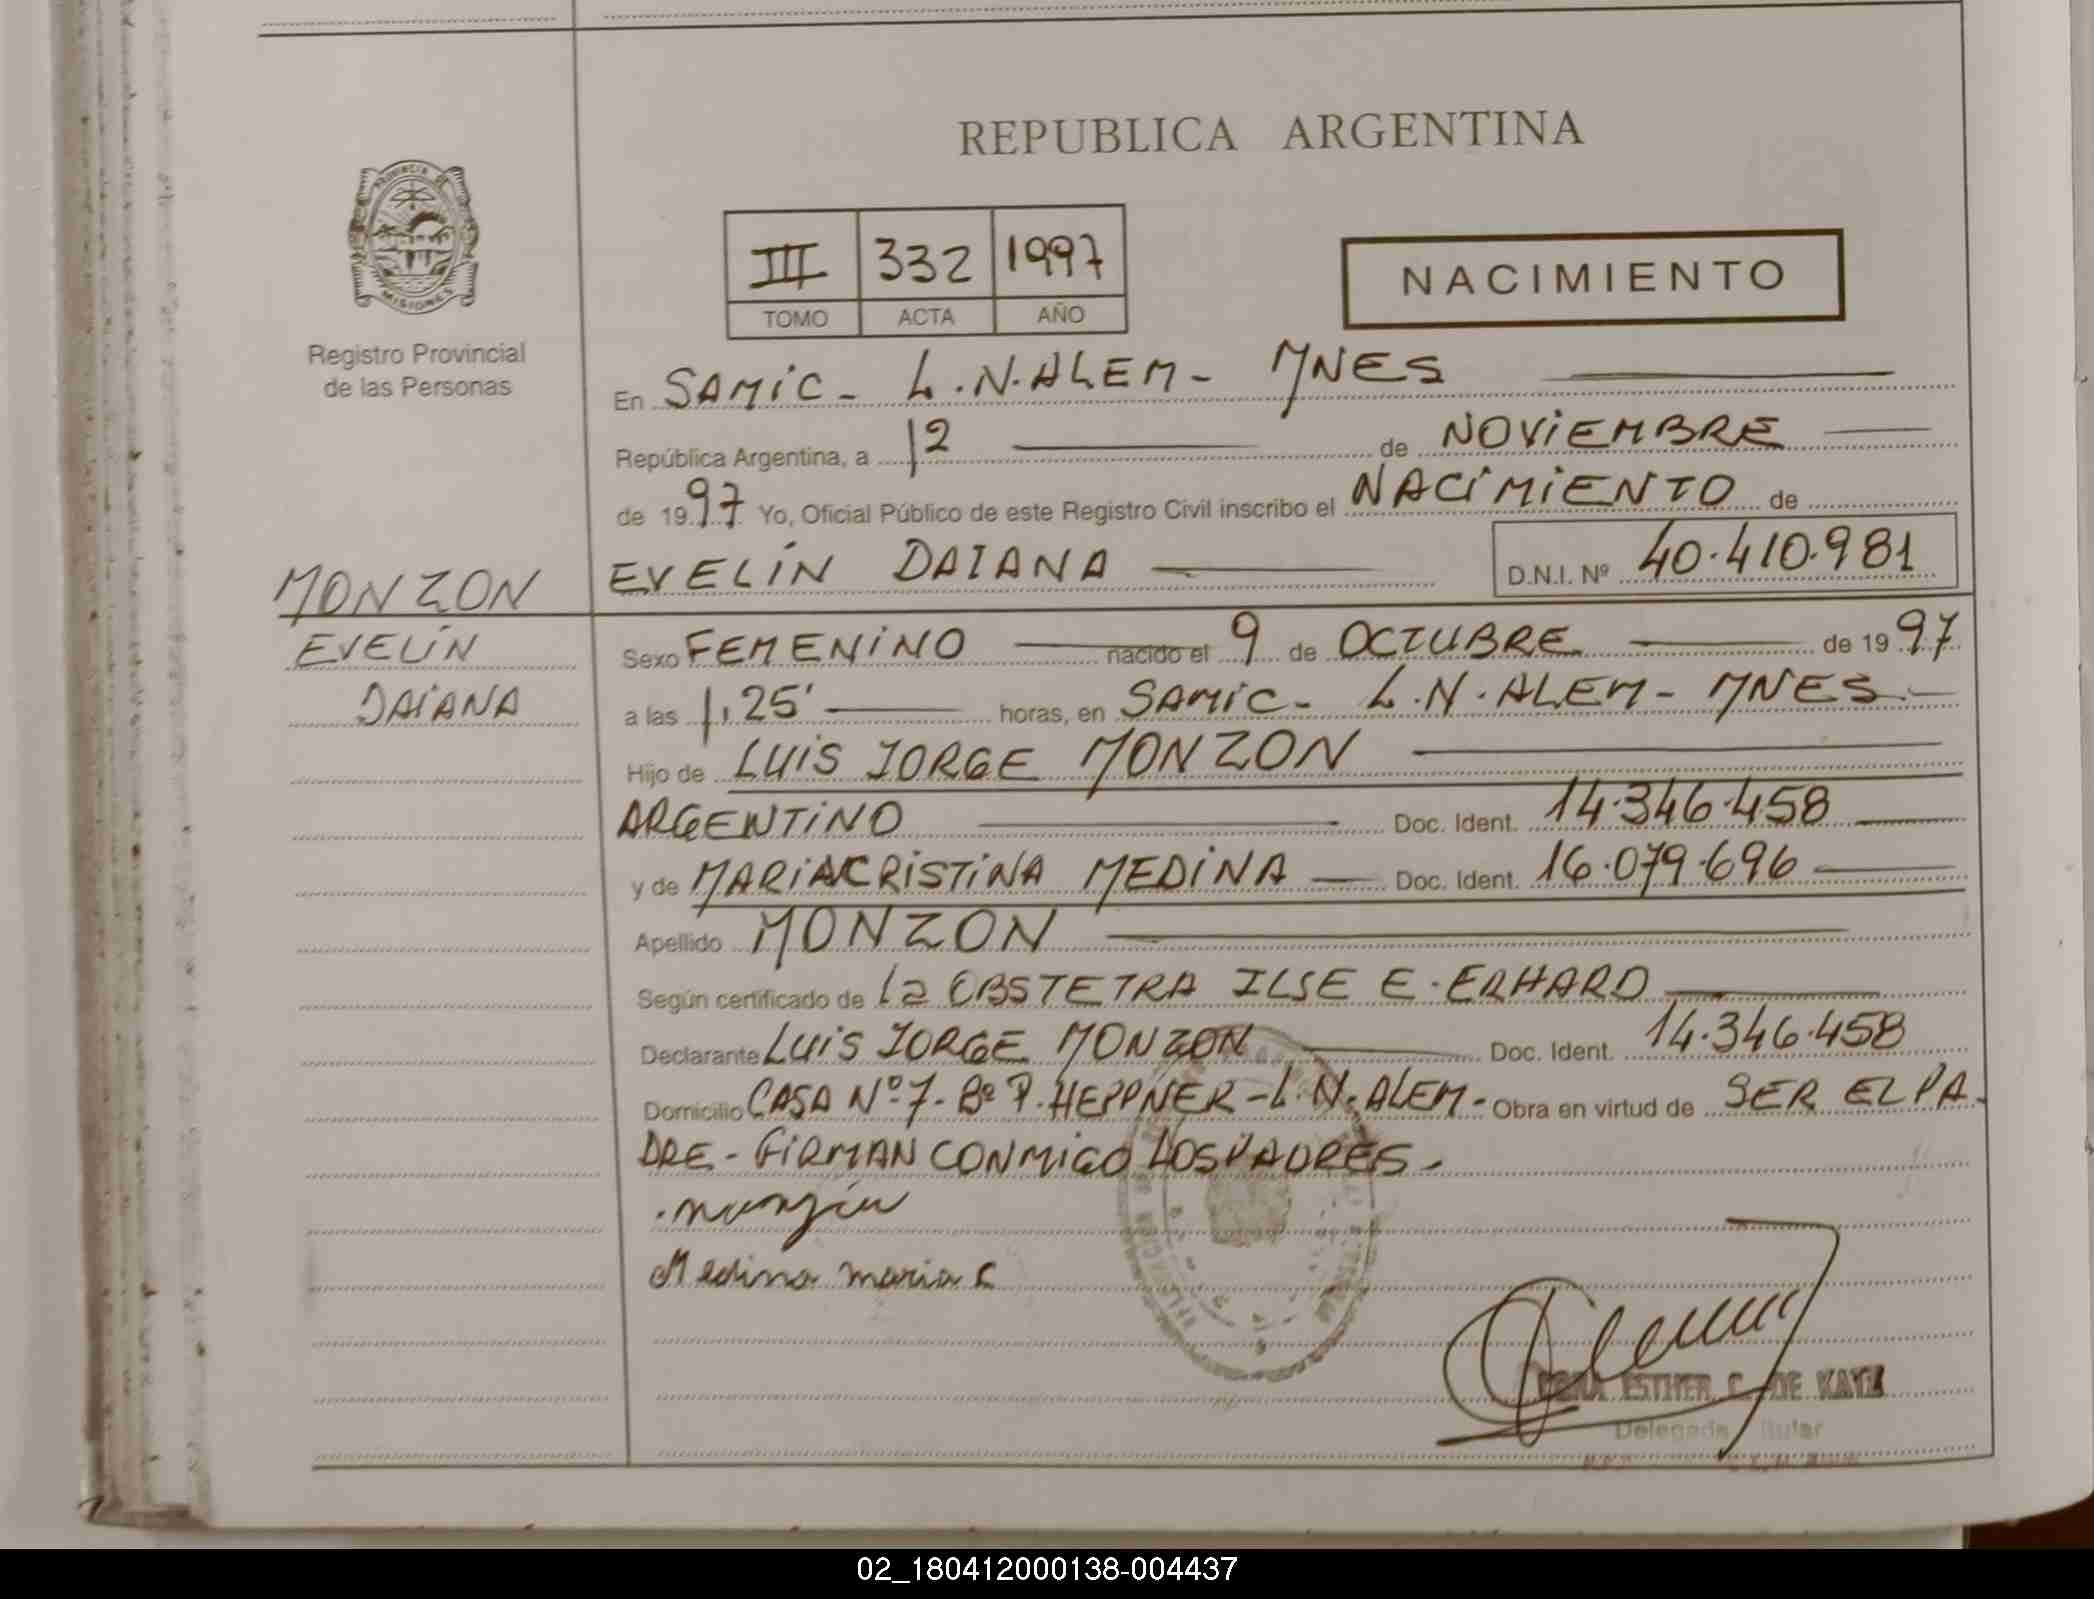 REPUBLICA ARGENTINA
PROVINCIA DE
MISIONES
Registro Provincial
de las Personas
III 332 1997
TOMO ACTA AÑO
NACIMIENTO
En SAMIC - L.N.ALEM - MNES
República Argentina, a 12 de NOVIEMBRE
de 1997 Yo, Oficial Público de este Registro Civil inscribo el NACIMIENTO de
EVELIN DAIANA D.N.I. Nº 40.410.981
MONZON
EVELIN
DAIANA
Sexo FEMENINO nacido el 9 de OCTUBRE de 1997
a las 1,25' horas, en SAMIC - L.N.ALEM - MNES.-
Hijo de LUIS JORGE MONZON
ARGENTINO Doc. Ident. 14.346.458
y de MARIA CRISTINA MEDINA Doc. Ident. 16.079.696
Apellido MONZON
Según certificado de la OBSTETRA ILSE E. ERHARD
Declarante LUIS JORGE MONZON Doc. Ident. 14.346.458
Domicilio CASA Nº 7 - Bº P. HEPPNER - L.N.ALEM - Obra en virtud de SER EL PA-
DRE - FIRMAN CONMIGO LOS PADRES -
Medina maria C
ESTHER C. DE KATZ
Delegada Titular
02_180412000138-004437